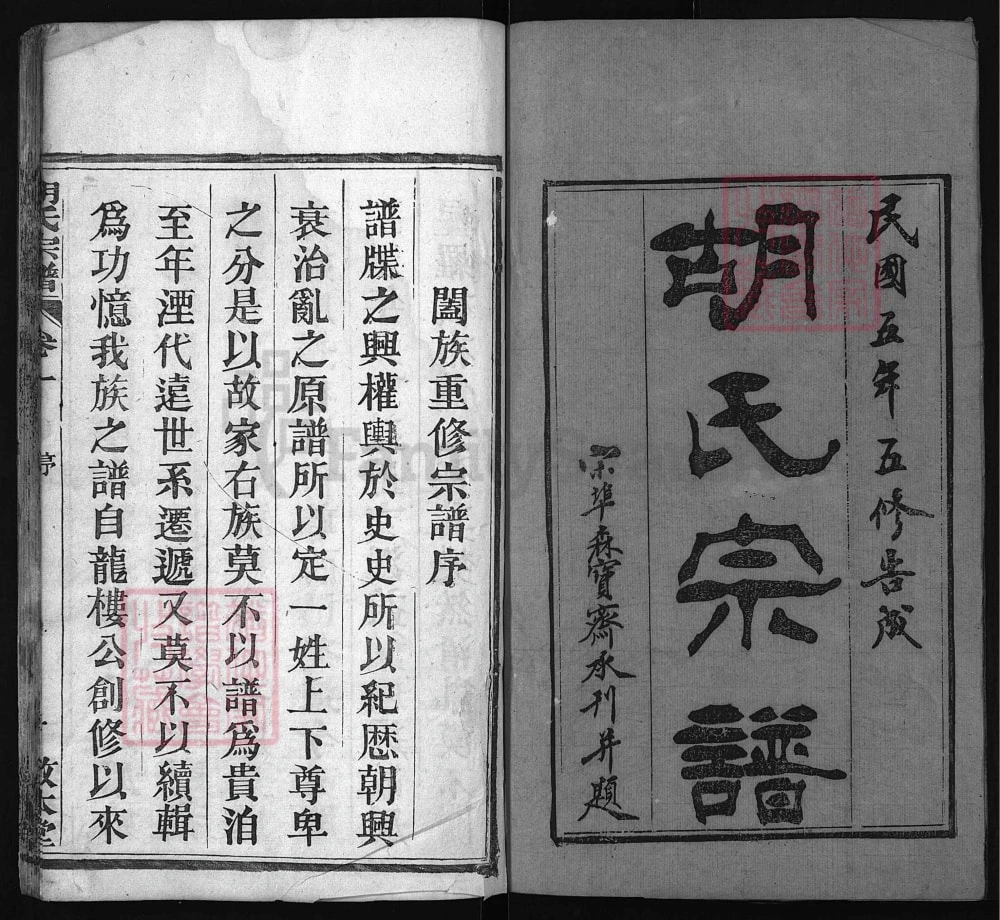 民國五年五修告成
胡氏宗譜
宋埠森寶齋承刊并題
闔族重修宗譜序
譜牒之興權輿於史史所以紀歴朝興
衰治亂之原譜所以定一姓上下尊卑
之分是以故家右族莫不以譜爲貴洎
至年湮代遠世系遷遞又莫不以續輯
爲功憶我族之譜自龍樓公創修以來
胡氏宗譜 卷一 序 敦本堂